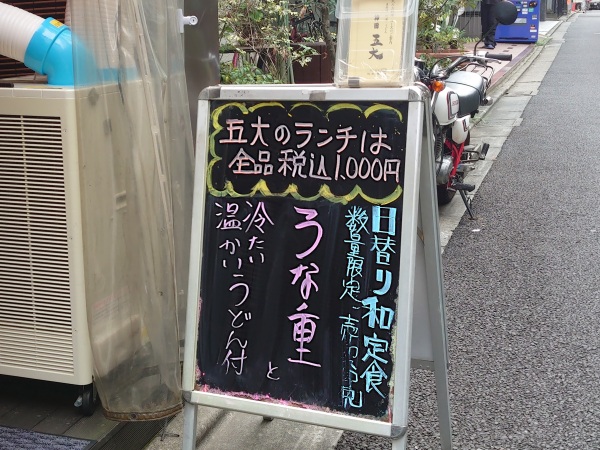 五大
五大のランチは
全品税込1,000円
日替り和定食
数量限定、売切御免
うな重
と
冷たい
温かいうどん付